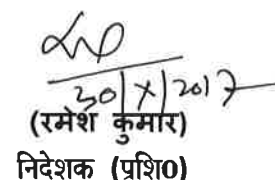 30/X/2017
(रमेश कुमार)
निदेशक (प्रशि0)